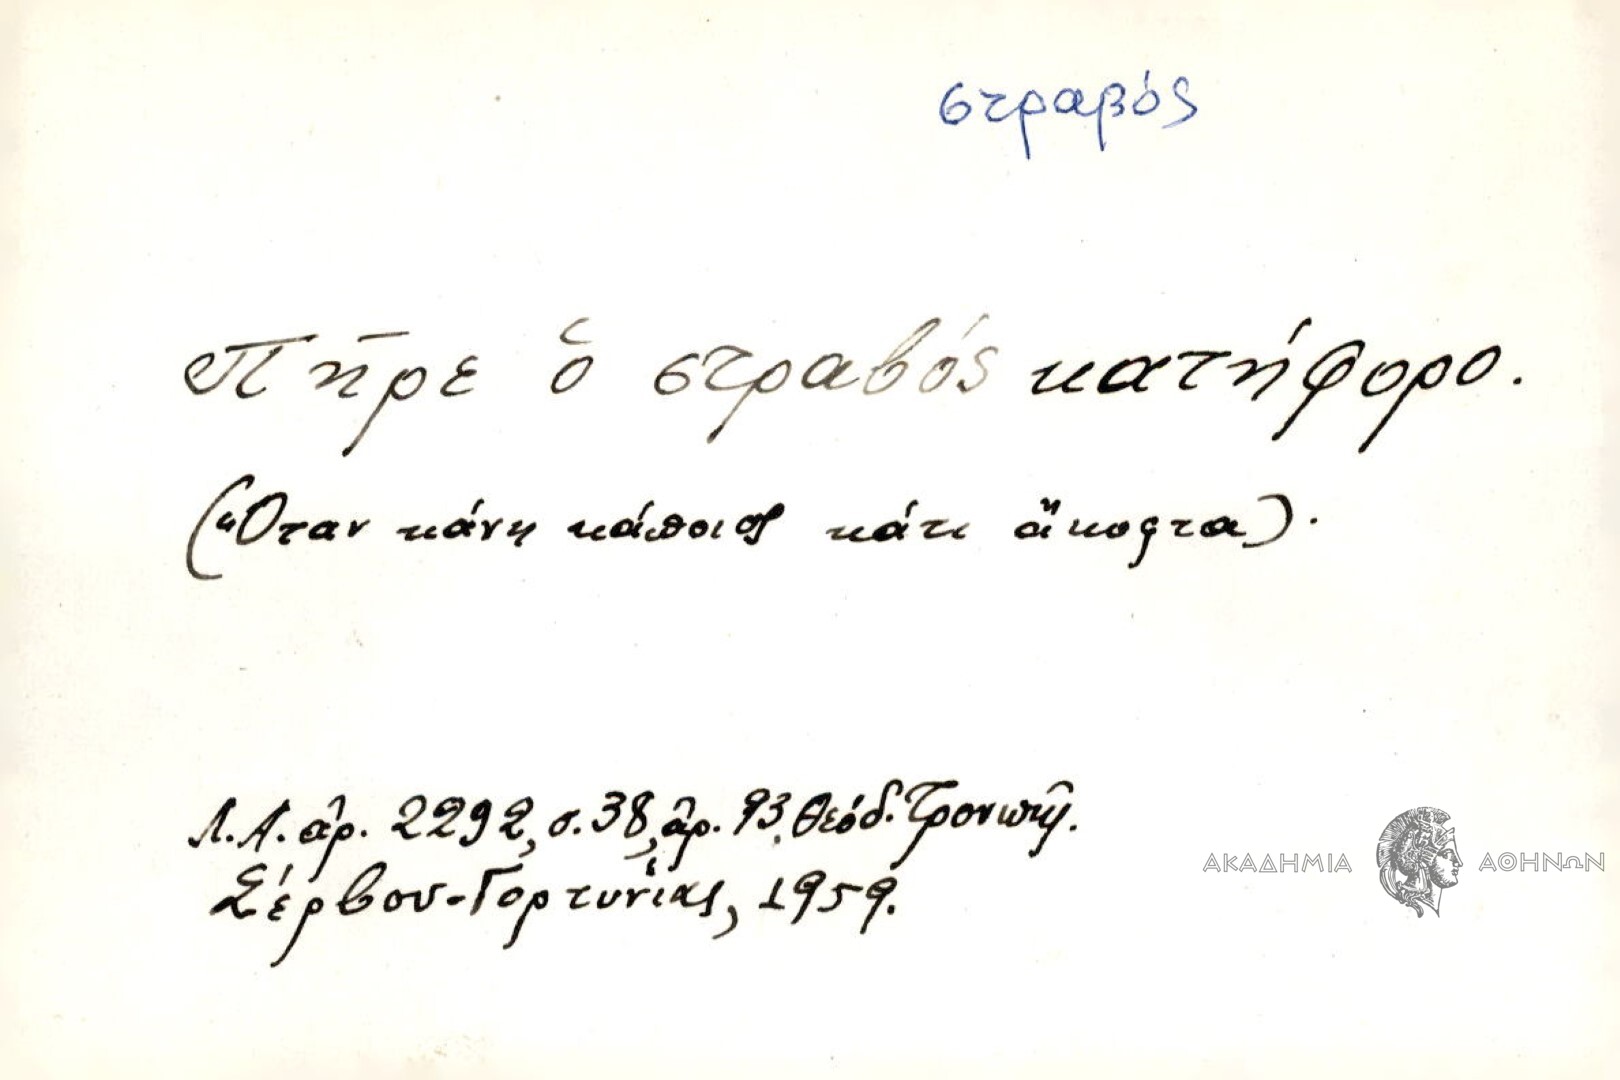 στραβός
Πῆρε ὁ στραβός κατήφορο.
(Ὅταν κάνῃ κάποιος κάτι ἄκοφτα).
Λ.Α. ἀρ. 2292, σ. 38, ἀρ. 93, Θεόδ.
Σέρβου-Γορτυνίας, 1959.
ΑΚΑΔΗΜΙΑ ΑΘΗΝΩΝ